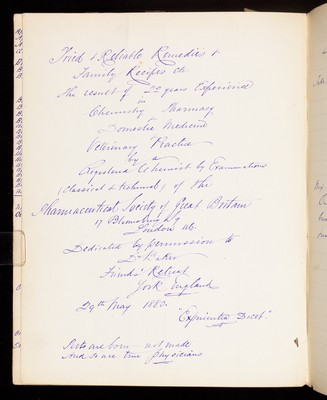 Tried & Reliable Remedies &
Family Recipes etc
the result of 20 years Experience
in
Chemistry Pharmacy
Domestic Medicine
Veterinary Practice
by a
Registered Chemist by Examinations
(classical & technical) of the
Pharmaceutical Society of Great Britain
17 Bloomsbury Sq
London WC.
Dedicated by permission to
Dr Baker
Friends' Retreat
York England
29th May 1882.
"Experientia Docet"
Poets are born - not made
And so are true physicians